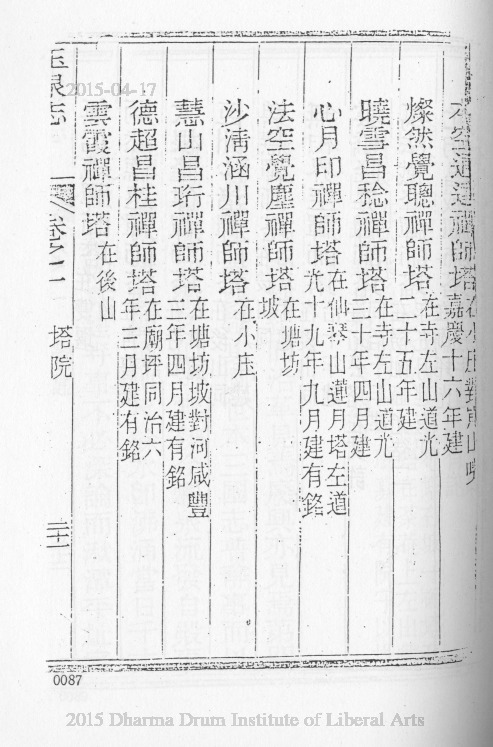 本空通達禪師塔在小庄對山
嘉慶十六年建
燦然覺聰禪師塔在寺左山道光
二十五年建
曉雲昌稔禪師塔在寺左山道光
三十年四月建
心月印禪師塔在仙琴山蓮月塔左道
光十九年九月建有銘
法空覺塵禪師塔在塘坊
坡
沙清涵川禪師塔在小庄
慧山昌珩禪師塔在塘坊坡對河咸豐
三年四月建有銘
德超昌桂禪師塔在廟坪同治六
年三月建有銘
雲霞禪師塔在後山
玉泉志 卷之 塔院
2015-04-17
0087
2015 Dharma Drum Institute of Liberal Arts